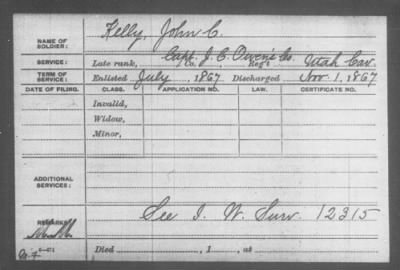 NAME OF SOLDIER: Kelly, John C.
SERVICE: Late rank, Capt. J. C. Owens Co. Reg't Utah Cav.
TERM OF SERVICE: Enlisted July, 1867 Discharged Nov. 1, 1867
DATE OF FILING. CLASS. APPLICATION NO. LAW. CERTIFICATE NO.
Invalid,
Widow,
Minor,
ADDITIONAL SERVICES:
See I. W. Surv. 12315
REMARKS:
Died , 1 , at